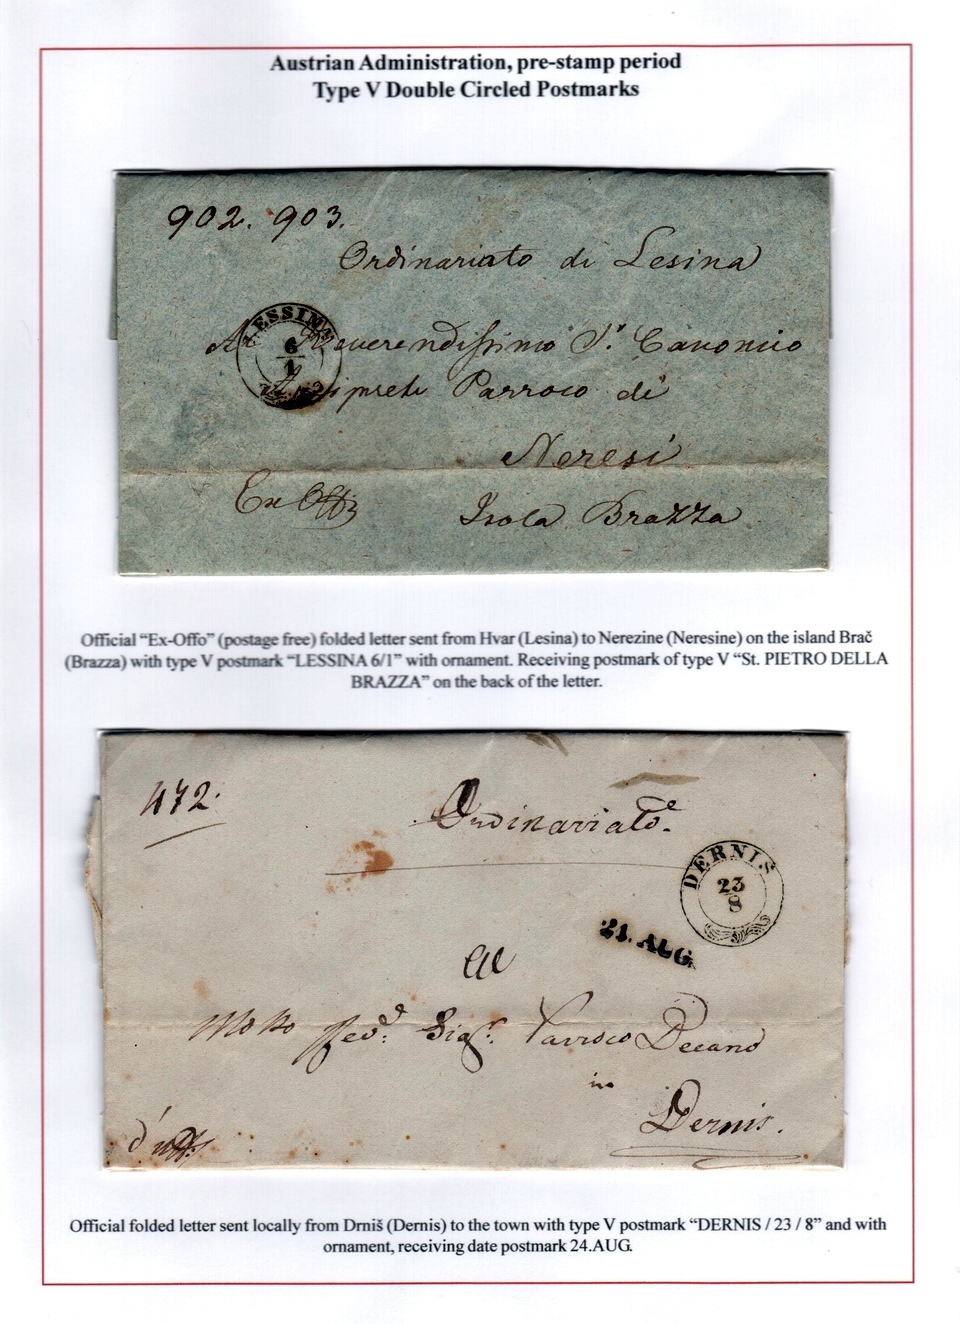 Austrian Administration, pre-stamp period
Type V Double Circled Postmarks
902. 903.
Ordinariato di Lesina
LESSINA
6
1
Al Reverendissimo Sr. Canonico
Arciprete Parroco di
Neresi
Ex Offo
Isola Brazza
Official “Ex-Offo” (postage free) folded letter sent from Hvar (Lesina) to Nerezine (Neresine) on the island Brač
(Brazza) with type V postmark “LESSINA 6/1” with ornament. Receiving postmark of type V “St. PIETRO DELLA
BRAZZA” on the back of the letter.
472.
Ordinariato
DERNIS
23
8
24. AUG.
Al
Molto Revd. Sigr. Parroco Decano
in
Dernis.
Official folded letter sent locally from Drniš (Dernis) to the town with type V postmark “DERNIS / 23 / 8” and with
ornament, receiving date postmark 24.AUG.